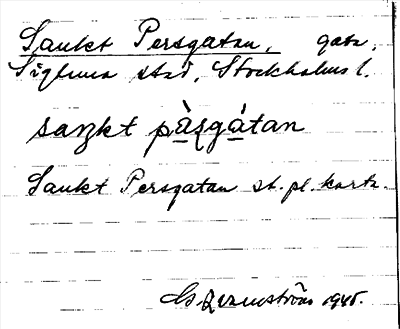 Sankt Persgatan, gata,
Sigtuna stad, Stockholms l.
saŋkt pàrgátan
Sankt Persgatan st. pl. karta.
1945.